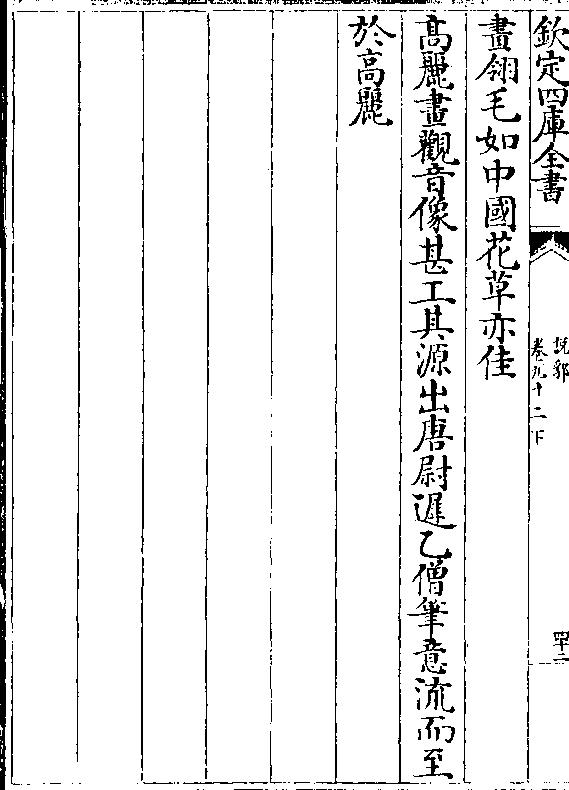 欽定四庫全書
說郛
卷九十二下
四十二
畫翎毛如中國花草亦佳
髙麗畫觀音像甚工其源出唐尉遲乙僧筆意流而至
於高麗